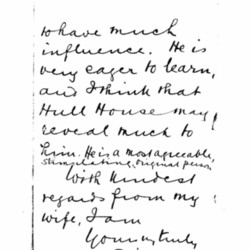 to have much
influence. He is
very eager to learn,
and I think that
Hull House may
reveal much to
him. He is a most agreeable,
stimulating, original person
With kindest
regards from my
wife, I am
Yours truly